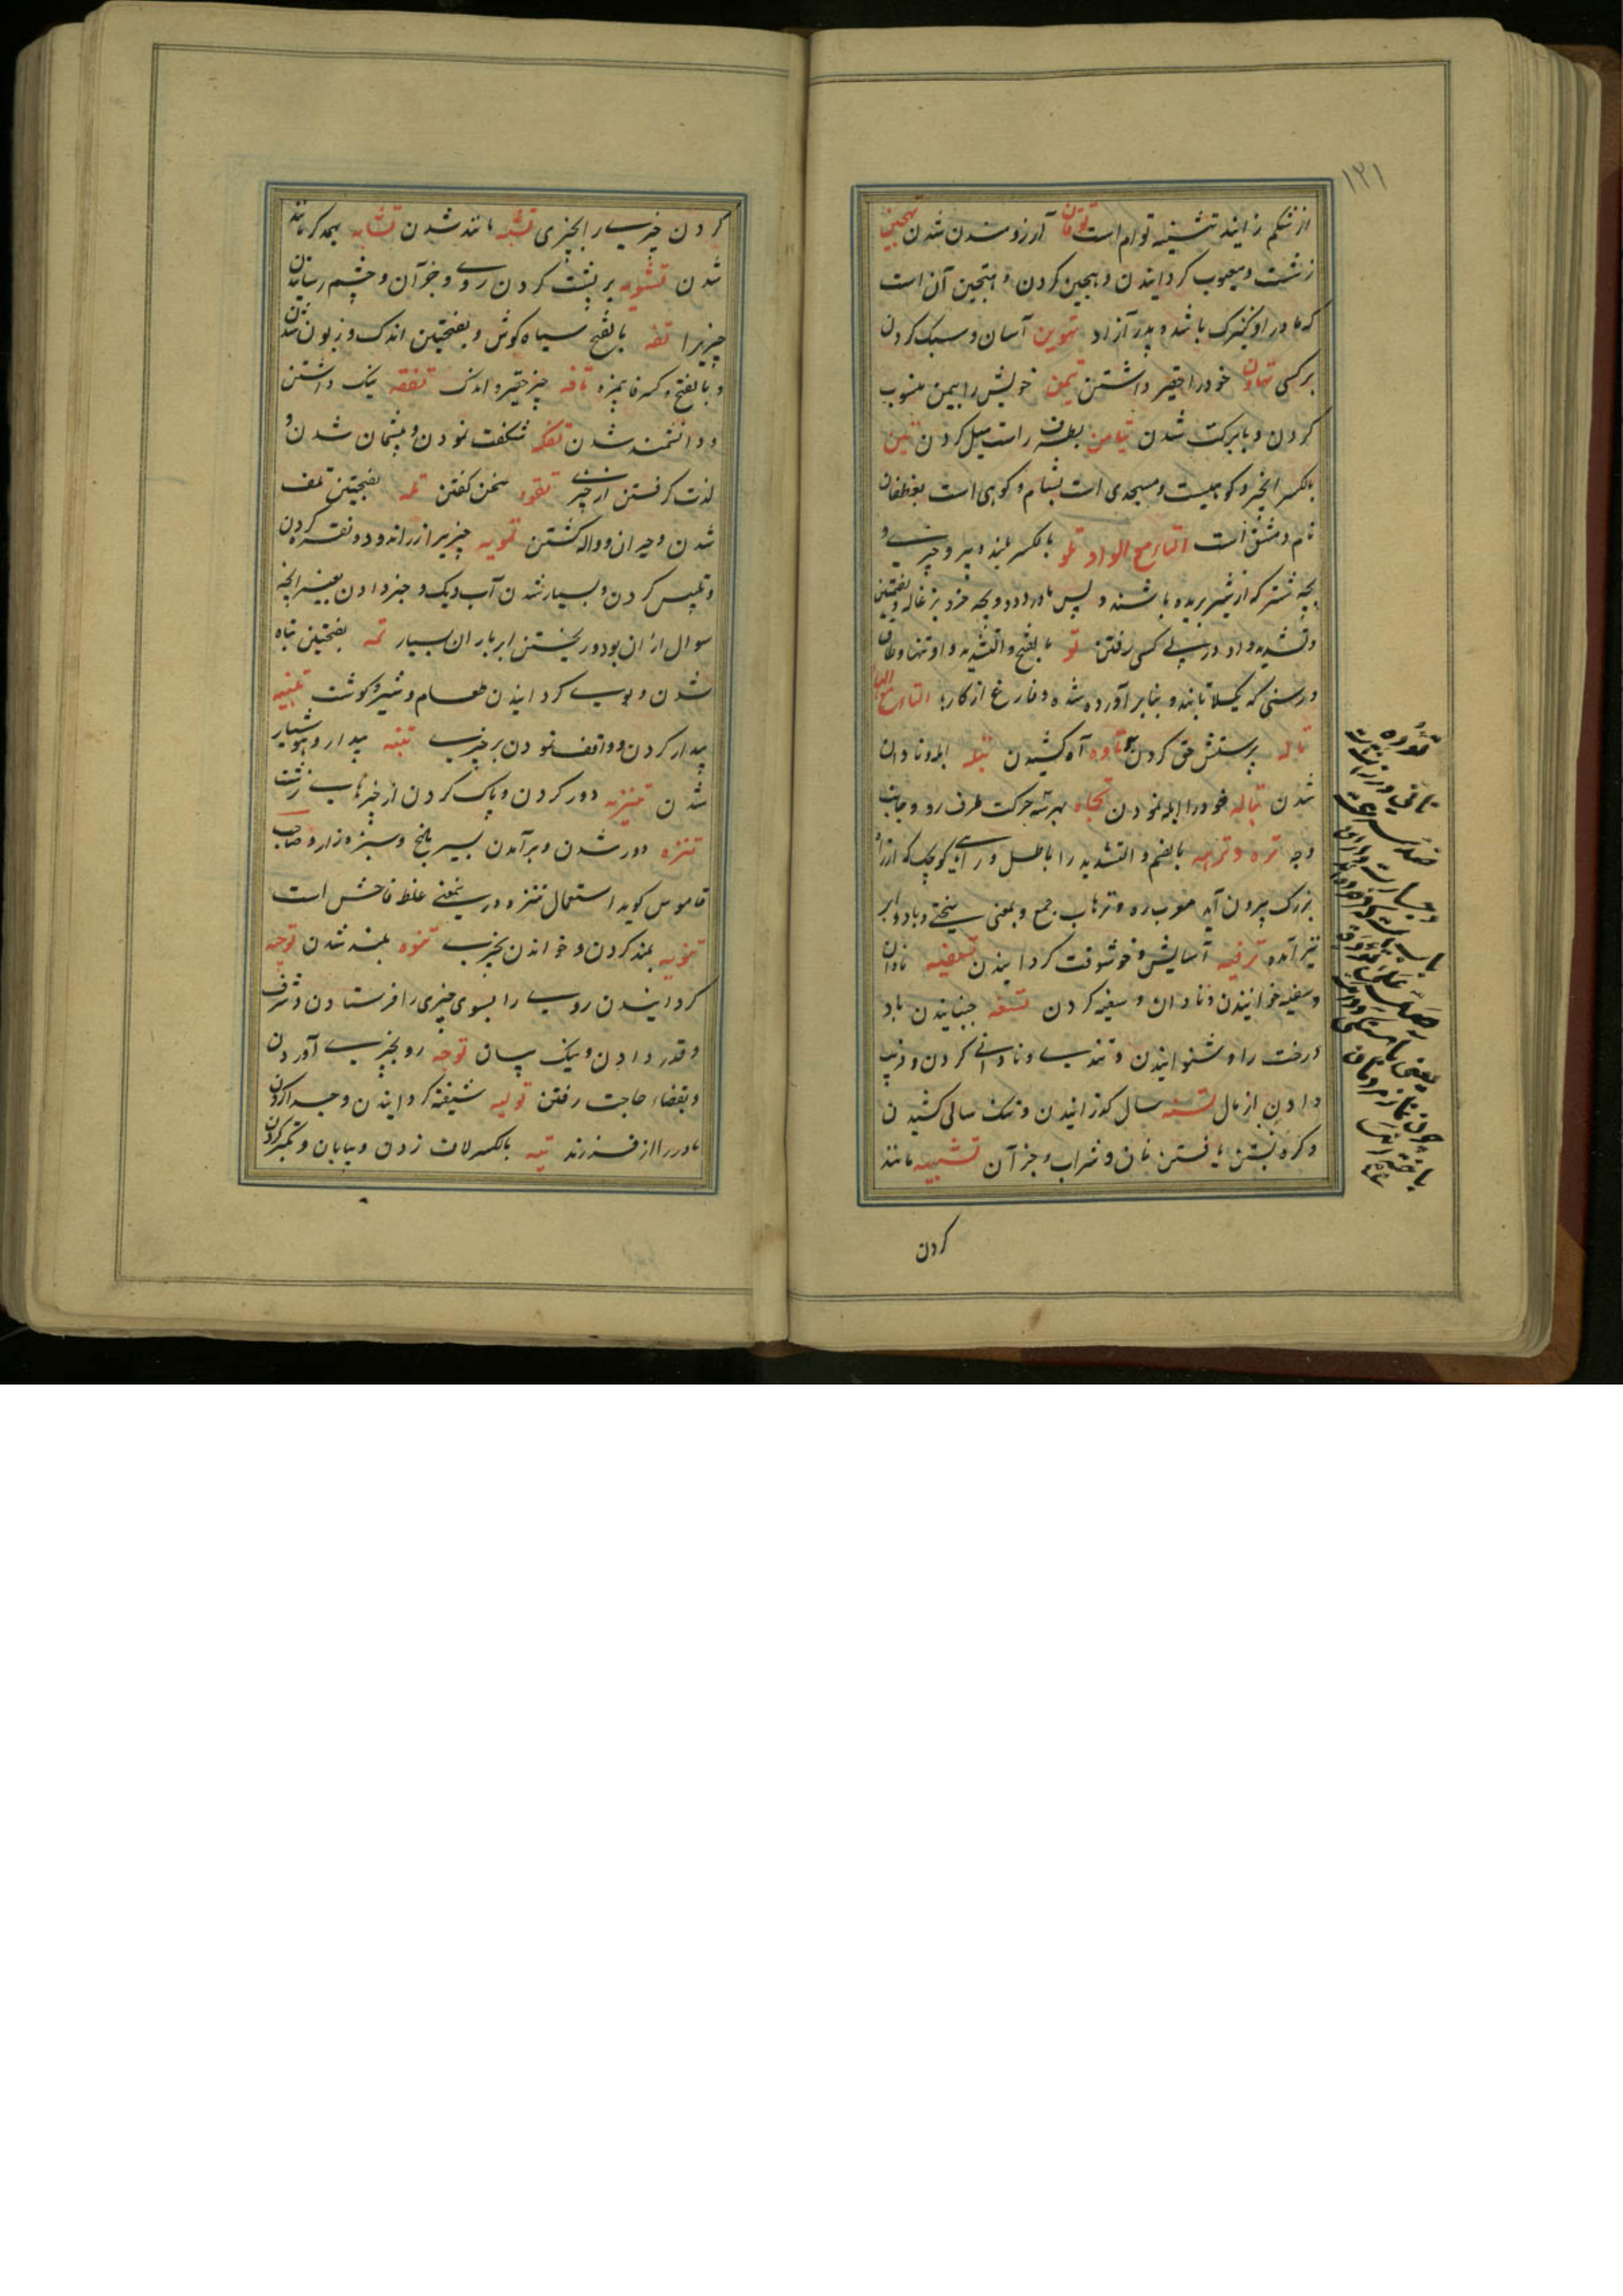 ۱۲۱
از شکم زایند تثنیه توام است توقان آرزومند شدن تهجین
زشت و معیوب گردانیدن و هجین کردن و هجین آن است
که مادر او کنیزک باشد و پدر آزاد تهوین آسان و سبک کردن
بر کسی تهاون خود را حقیر داشتن تیمن خویش را بیمن منسوب
کردن و با برکت شدن تیامن بطرف راست میل کردن تین
بالکسر انجیر و کوهیست و مسجدی است بشام و کوهی است بغطفان
نام دمشق است التاء مع الواو تلو بالکسر بلند و پیرو چیزی و
بچه شتر که از شیر بریده باشند و پس مادر رود و بچه خرد بزغاله و بضمتین
و تشدید واو در پی کسی رفتن تو بالفتح و التشدید واو تنها و طاق
و رسنی که یکلا تابند و بنابر آورده شده و فارغ از کار التاء مع الهاء
تاله پرستش حق کردن تاوه آه کشیدن تبله ابله و نادان
شدن تباله خود را ابله نمودن تجاه بهر سه حرکت طرف رو و جانب
وجه تره و ترهه بالضم و التشدید را باطل و راهی کوچک که از راه
بزرگ بیرون آید معرب ره و ترهات جمع و بمعنی سختی و باد و ابر
نیز آمده ترفیه آسایش و خوشوقت گردانیدن تسفیه نادان
و سفیه خوانیدن و نادان و سفیه کردن تسفه جنبانیدن باد
درخت را و شنوانیدن و تندی و نادانی کردن و فریب
دادن از مال تسنه سال گذرانیدن و تنک سالی کشیدن
و کره بستن یافتن نان و شراب و جز آن تشبیه مانند
کردن
کردن چیزی را بچیزی تشبه مانند شدن تشابه بهمدگر مانند
شدن تشویه برپشت کردن روی و جز آن و چشم رسانیدن
چیزی را تفه بالفتح سیاه گوش و بفتحتین اندک و زبون شدن
و بالفتح و کسر فا بمزه تافه چیز حقیر و اندک تفقه نیک داشتن
و دانشمند شدن تفکه شگفت نمودن و پشیمان شدن و
لذت گرفتن از چیزی تفوه سخن گفتن تله بفتحتین تلف
شدن و حیران و واله گشتن تمویه چیزی را زراندود و نقره کردن
و تلبیس کردن و بسیار شدن آب دیک و خبر دادن بغیر آنچه
سوال از آن بود و ریختن ابر باران بسیار تمه بفتحتین تباه
شدن و بوی گردانیدن طعام و شیر و گوشت تنبیه
بیدار کردن و واقف نمودن بر چیزی تنبه بیدار و هوشیار
شدن تنزیه دور کردن و پاک کردن از چیزهای زشت
تنزه دور شدن و برآمدن بسیر باغ و سبزه زار و صاحب
قاموس گوید استعمال تنزه در ینمعنی غلط فاحش است
تنویه بلند کردن و خواندن بچیزی تنوه بلند شدن توجیه
گردانیدن روی را بسوی چیزی را فرستادن و شرف
و قدر دادن و یک سان توجه رو بچیزی آوردن
و بقضاء حاجت رفتن تولیه شیفته گردانیدن و جدا کردن
مادر را از فرزند تیه بالکسر لاف زدن و بیابان و تکبر کردن